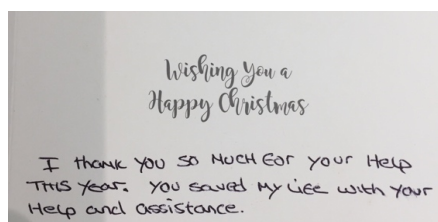 Wishing You a
Happy Christmas
I thank you so much for your Help
This Year. You saved my life with your
Help and assistance.